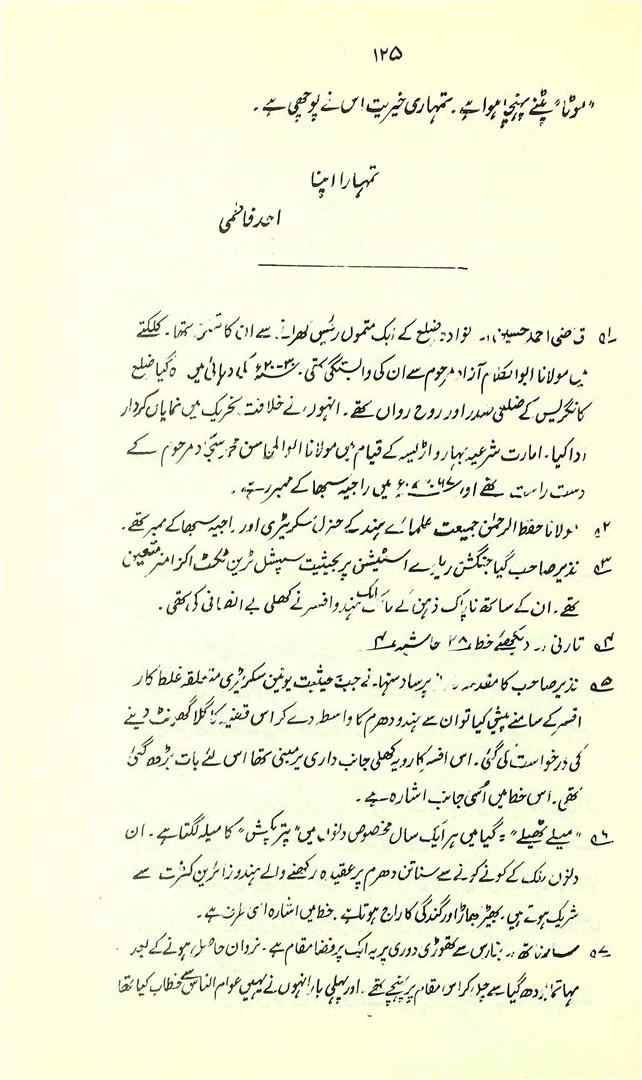 ۱۲۵
"موٹا" پٹنے پہنچا ہوا ہے۔ تمہاری خیریت اس نے پوچھی ہے۔
تمہارا اپنا
احمد فاطمی
۱؎ قاضی احمد حسین :۔ نوادہ ضلع کے ایک متمول رئیس گھرانے سے ان کا تعلق تھا۔ کلکتے
میں مولانا ابوالکلام آزاد مرحوم سے ان کی وابستگی تھی۔ ۳۰-۱۹۲۰ء کی دہائی میں وہ گیا ضلع
کانگریس کے ضلعی صدر اور روح رواں تھے۔ انہوں نے خلافت تحریک میں نمایاں کردار
ادا کیا۔ امارت شرعیہ بہار و اڑیسہ کے قیام میں مولانا ابوالمحاسن محمد سجاد مرحوم کے
دست راست تھے اور میں راجیہ سبھا کے ممبر رہے۔
۲؎ مولانا حفظ الرحمٰن جمیعت علمائے ہند کے جنرل سکریٹری اور راجیہ سبھا کے ممبر تھے۔
۳؎ نذیر صاحب گیا جنکشن ریلوے اسٹیشن پر بحیثیت سپیشل ٹرین ٹکٹ اکزامنر متعین
تھے۔ ان کے ساتھ ناپاک ذہن کے مالک ایک ہندو افسر نے کھلی بے انصافی کی تھی۔
۴؎ تارنی :۔ دیکھئے خط ۲۸ حاشیہ ۴
۵؎ نذیر صاحب کا مقدمہ پرساد سنہا نے جب بحیثیت یونین سکریٹری متعلقہ غلط کار
افسر کے سامنے پیش کیا تو ان سے ہندو دھرم کا واسطہ دے کر اس قضیہ کا گلا گھونٹ دینے
کی درخواست کی گئی۔ اس افسر کا رویہ کھلی جانب داری پر مبنی تھا اس لئے بات بڑھ گئی
تھی۔ اس خط میں اُسی جانب اشارہ ہے۔
۶؎ "میلے ٹھیلے" :۔ گیا میں ہر ایک سال مخصوص دنوں میں "پتر پکش" کا میلہ لگتا ہے۔ ان
دنوں ملک کے کونے کونے سے سناتن دھرم پر عقیدہ رکھنے والے ہندو زائرین کثرت سے
شریک ہوتے ہیں۔ بھیڑ بھاڑ اور گندگی کا راج ہوتا ہے۔ خط میں اشارہ اسی طرف ہے۔
۷؎ سارناتھ :۔ بنارس سے تھوڑی دوری پر یہ ایک پرفضا مقام ہے۔ نروان حاصل ہونے کے بعد
مہاتما بدھ گیا سے چل کر اس مقام پر پہنچے تھے۔ اور پہلی بار انہوں نے یہیں عوام الناس سے خطاب کیا تھا